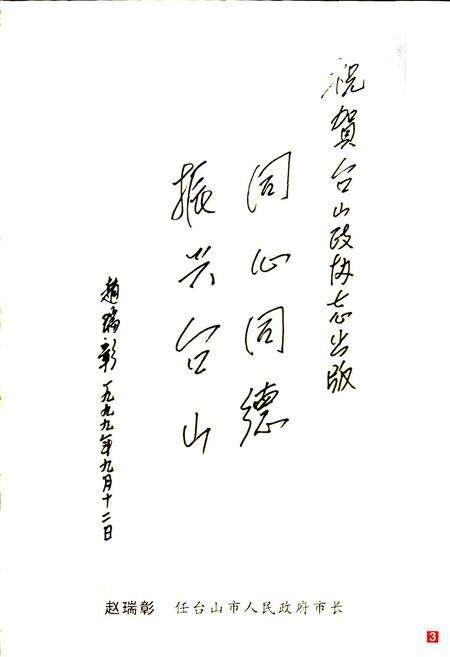 祝贺台山政协志出版
同心同德
振兴台山
趙瑞彰 一九九九年九月十二日
赵瑞彰 任台山市人民政府市长
3